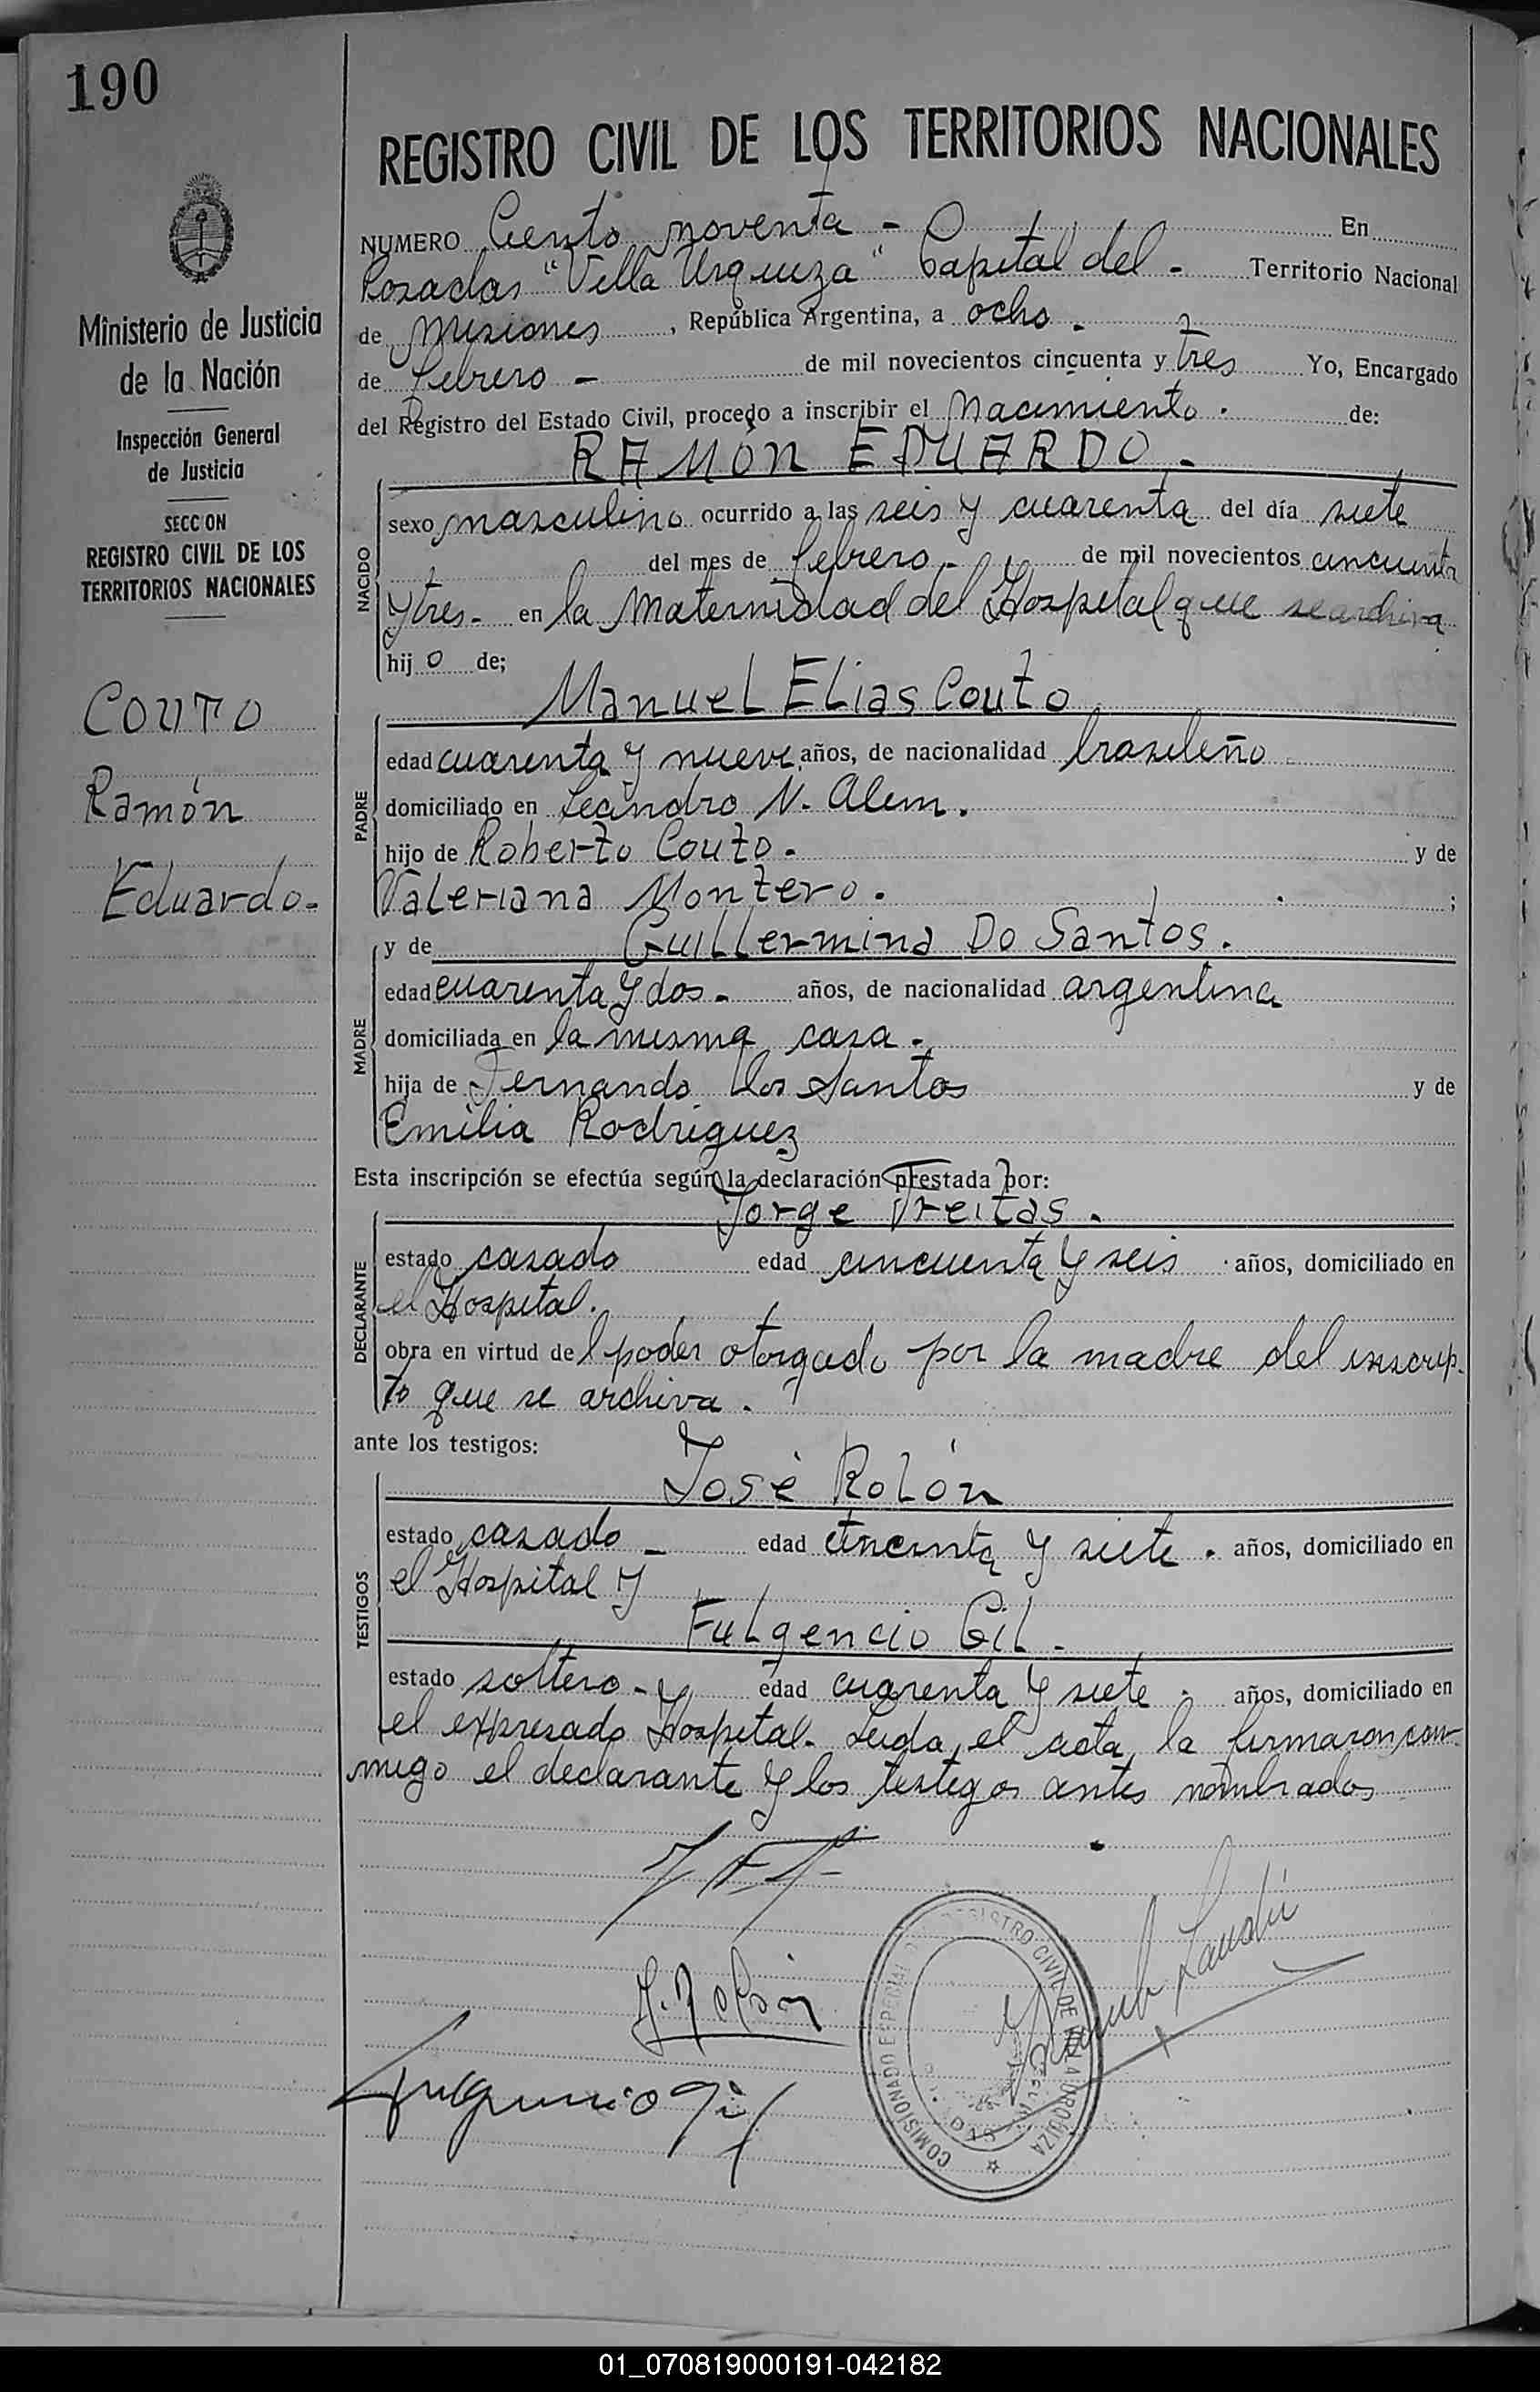 190
Ministerio de Justicia
de la Nación
Inspección General
de Justicia
SECCION
REGISTRO CIVIL DE LOS
TERRITORIOS NACIONALES
COUTO
Ramón
Eduardo.-
REGISTRO CIVIL DE LOS TERRITORIOS NACIONALES
NUMERO Ciento noventa - En
Posadas "Villa Urquiza" Capital del - Territorio Nacional
de Misiones, República Argentina, a ocho -
de febrero - de mil novecientos cincuenta y tres Yo, Encargado
del Registro del Estado Civil, procedo a inscribir el Nacimiento . de:
RAMÓN EDUARDO.-
NACIDO
sexo masculino ocurrido a las seis y cuarenta del día siete
del mes de febrero - de mil novecientos cincuenta
y tres - en la Maternidad del Hospital que se archiva
hijo de;
Manuel Elias Couto
PADRE
edad cuarenta y nueve años, de nacionalidad brasileño
domiciliado en Leandro N. Alem.
hijo de Roberto Couto - y de
Valeriana Montero. ;
MADRE
y de Guillermina Do Santos.
edad cuarenta y dos - años, de nacionalidad argentina
domiciliada en la misma casa.
hija de Fernando dos Santos y de
Emilia Rodriguez
Esta inscripción se efectúa según la declaración prestada por:
Jorge Freitas.
DECLARANTE
estado casado edad cincuenta y seis años, domiciliado en
el Hospital.
obra en virtud del poder otorgado por la madre del inscrip-
to que se archiva.
ante los testigos:
José Rolón
TESTIGOS
estado casado - edad y siete . años, domiciliado en
el Hospital y
Fulgencio Gil.
estado soltero - edad cuarenta y siete . años, domiciliado en
el expresado Hospital. Leida, el acta, la firmaron con-
migo el declarante y los testigos antes nombrados
J. Rolón
Fulgencio Gil
COMISIONADO ESPECIAL REGISTRO CIVIL DE VILLA URQUIZA
01_070819000191-042182